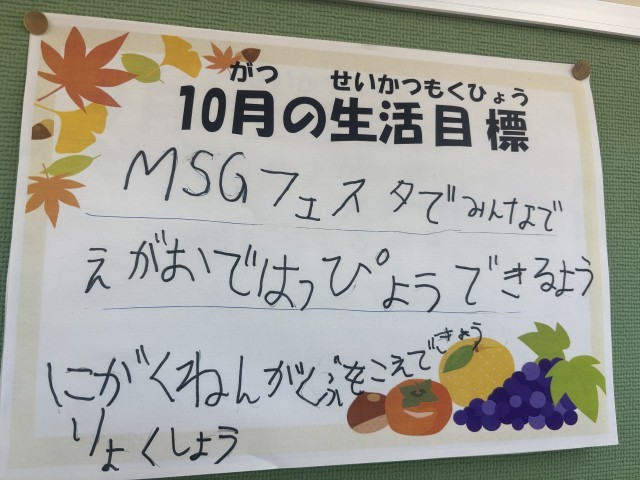 がつ せいかつもくひょう
10月の生活目標
MSGフェスタでみんなで
えがおではっぴょうできるよう
にがくねんがくぶをこえてできょう
りょくしよう